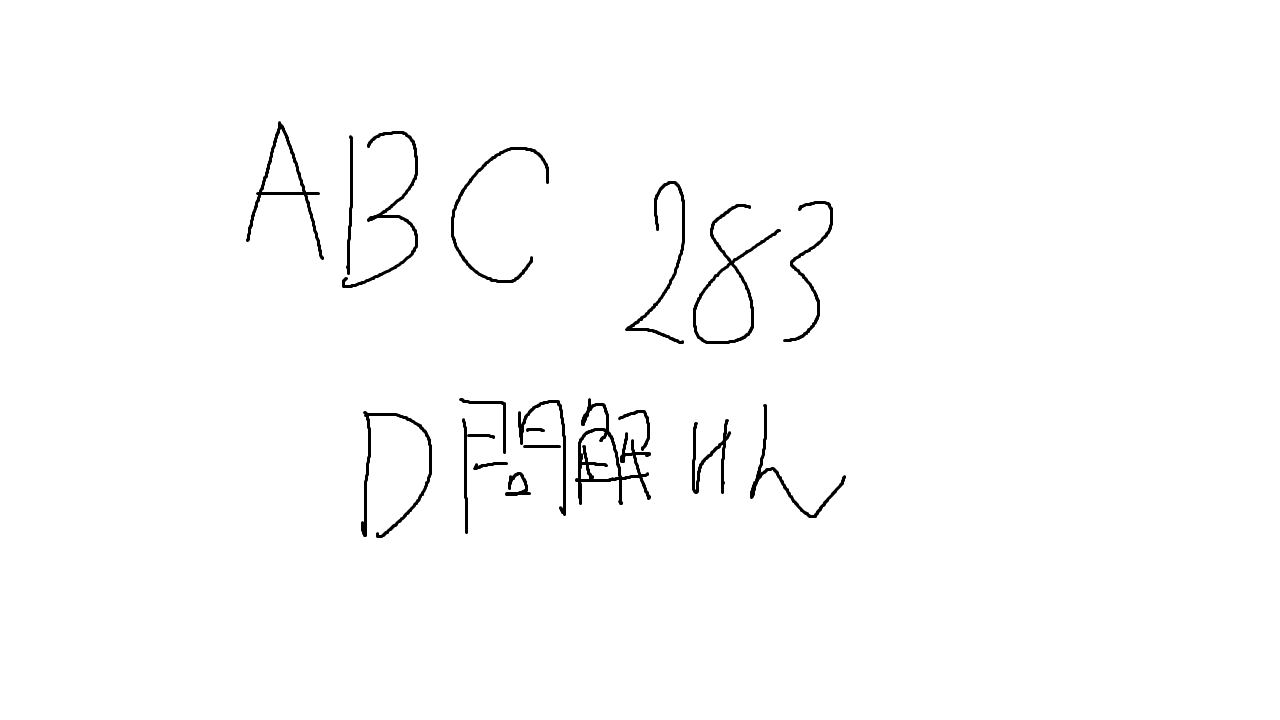 ABC 283
D問解けん